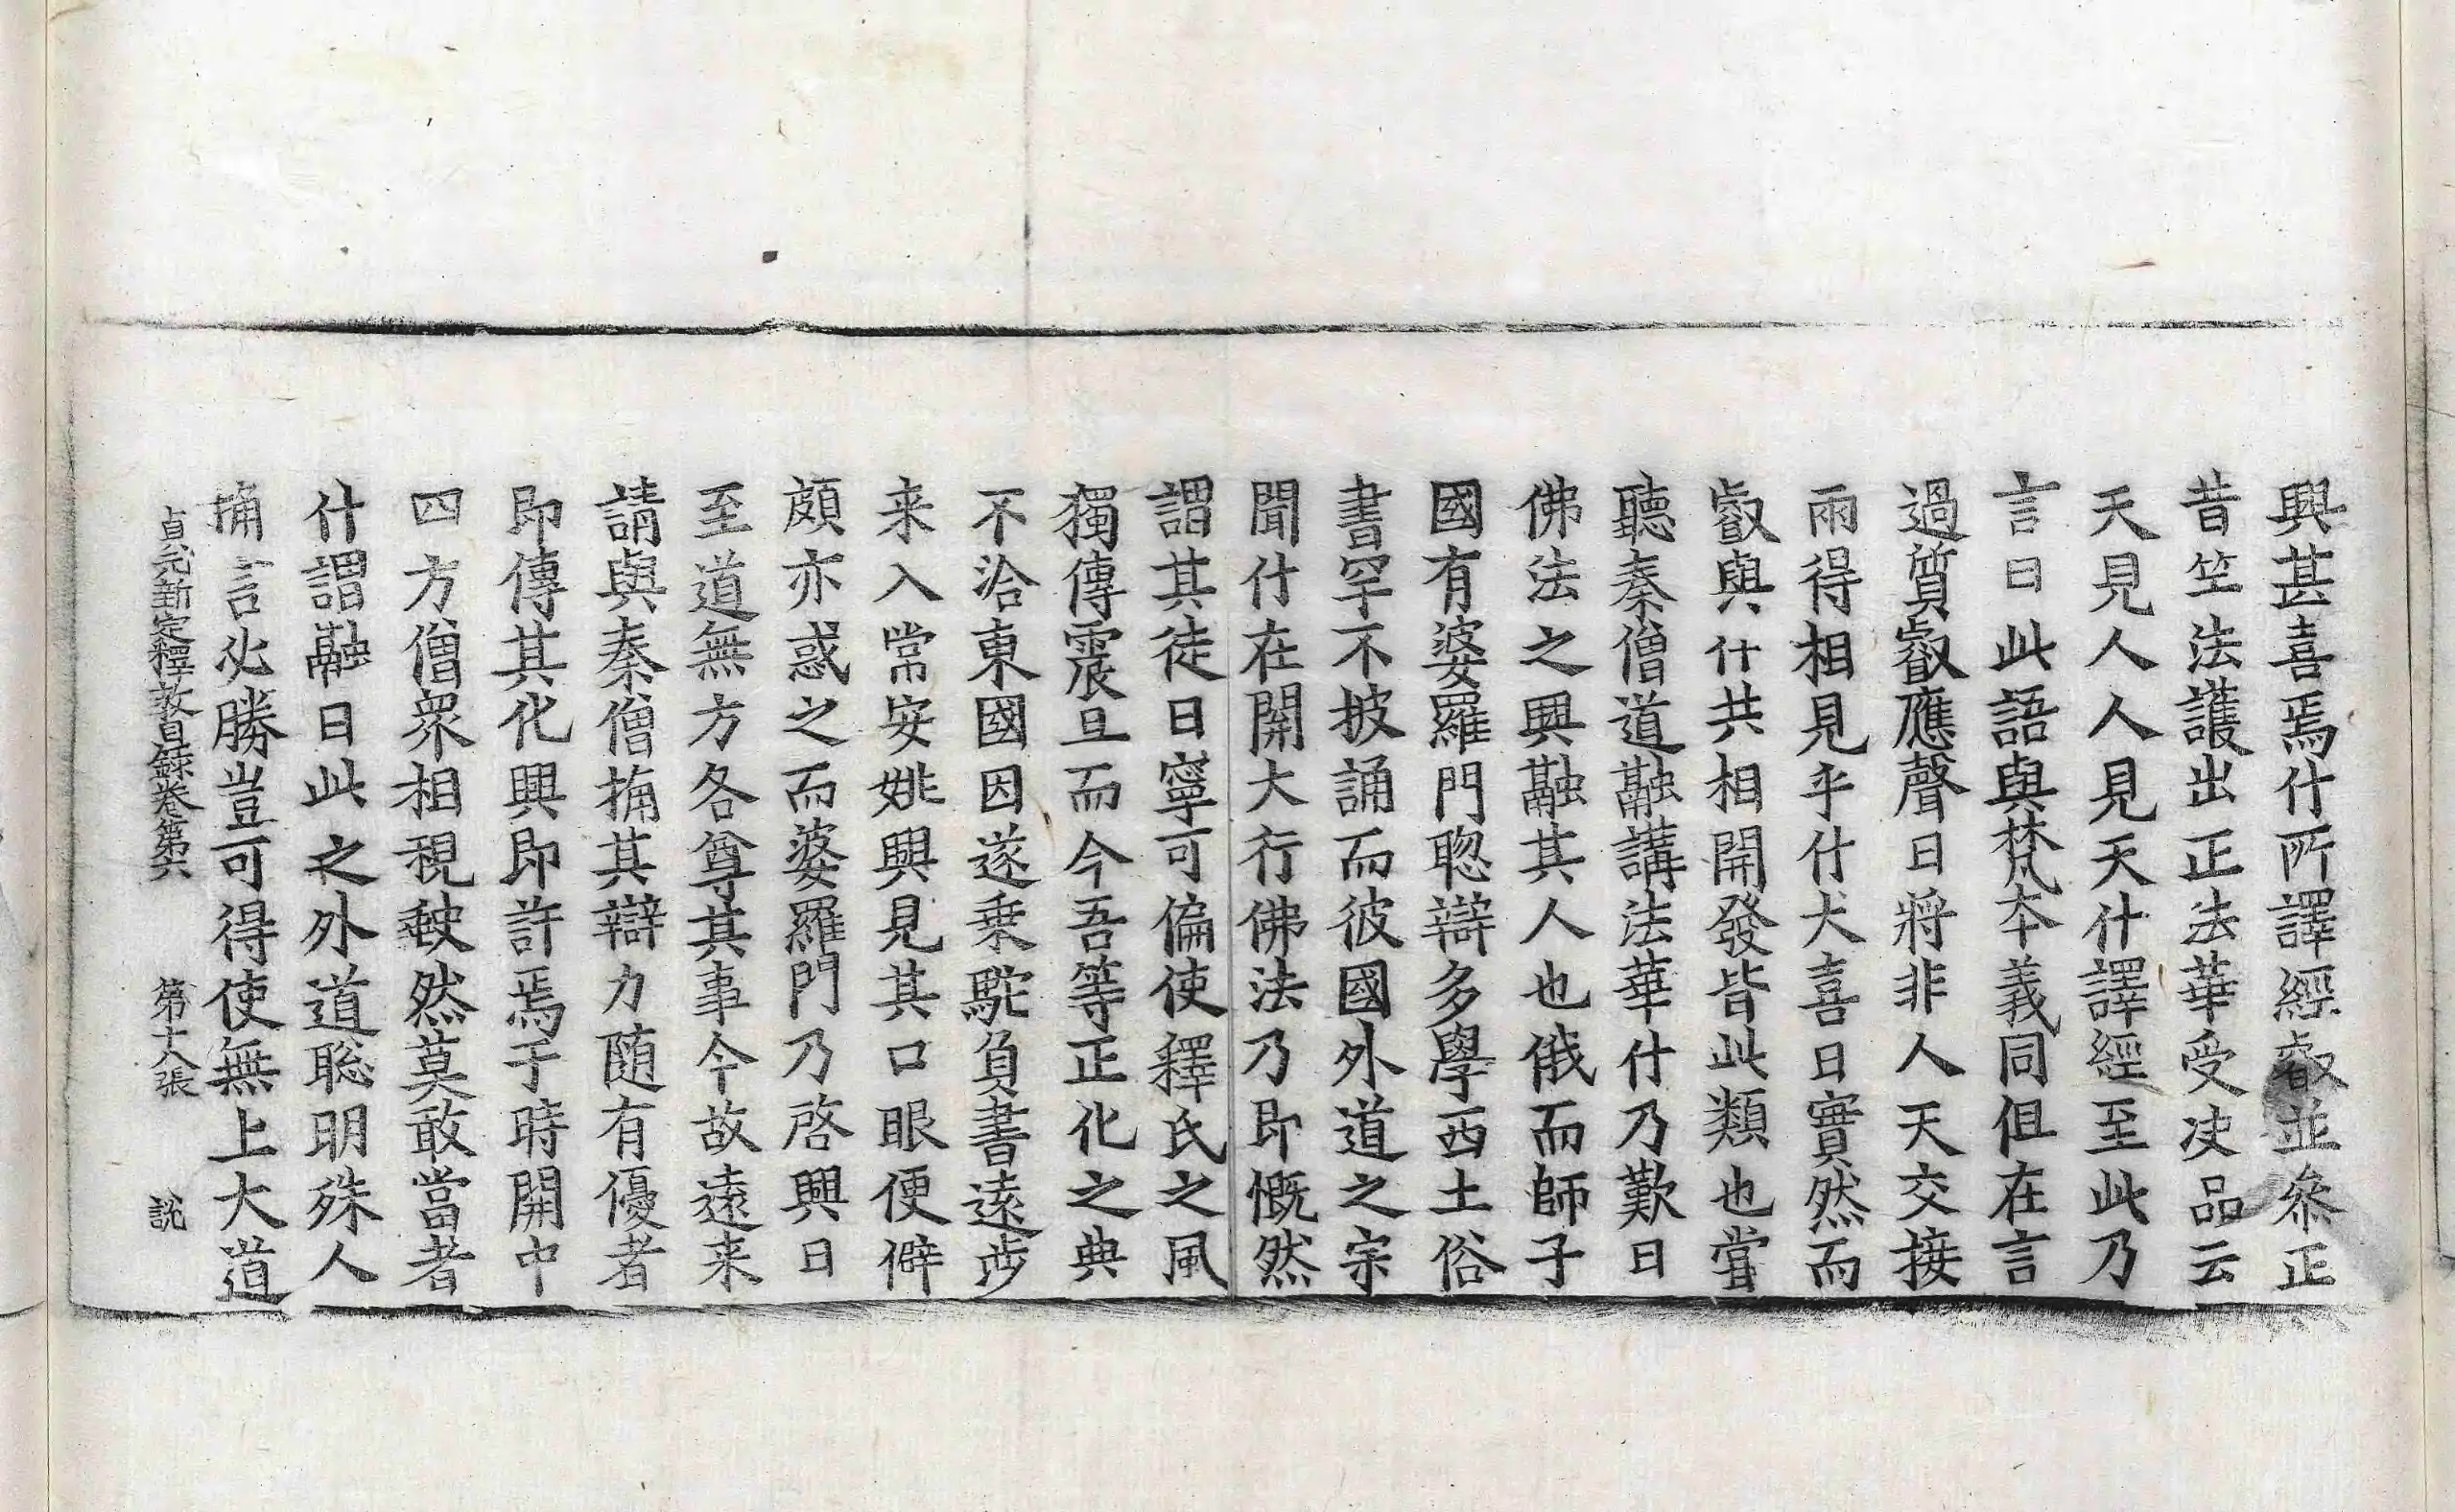 興甚喜焉什所譯經叡並參正
昔竺法護出正法華受决品云
天見人人見天什譯經至此乃
言曰此語與梵夲義同但在言
過質叡應聲曰將非人天交接
兩得相見乎什大喜曰實然而
叡與什共相開發皆此類也嘗
聽秦僧道融講法華什乃歎曰
佛法之興融其人也俄而師子
國有婆羅門聦辯多學西土俗
書罕不披誦而彼國外道之宗
聞什在開大行佛法乃即慨然
謂其徒曰寧可偏使釋氏之風
獨傳震旦而今吾等正化之典
不洽東國因遂乗駝負書遠步
来入常安姚興見其口眼便僻
頗亦惑之而婆羅門乃啓興曰
至道無方各尊其事今故遠来
請與秦僧捔其辯力随有優者
即傳其化興即許焉于時開中
四方僧衆相視軮然莫敢當者
什謂融曰此之外道聡明殊人
捔言必勝豈可得使無上大道
貞元新定釋教目録卷第六 第十八張 說